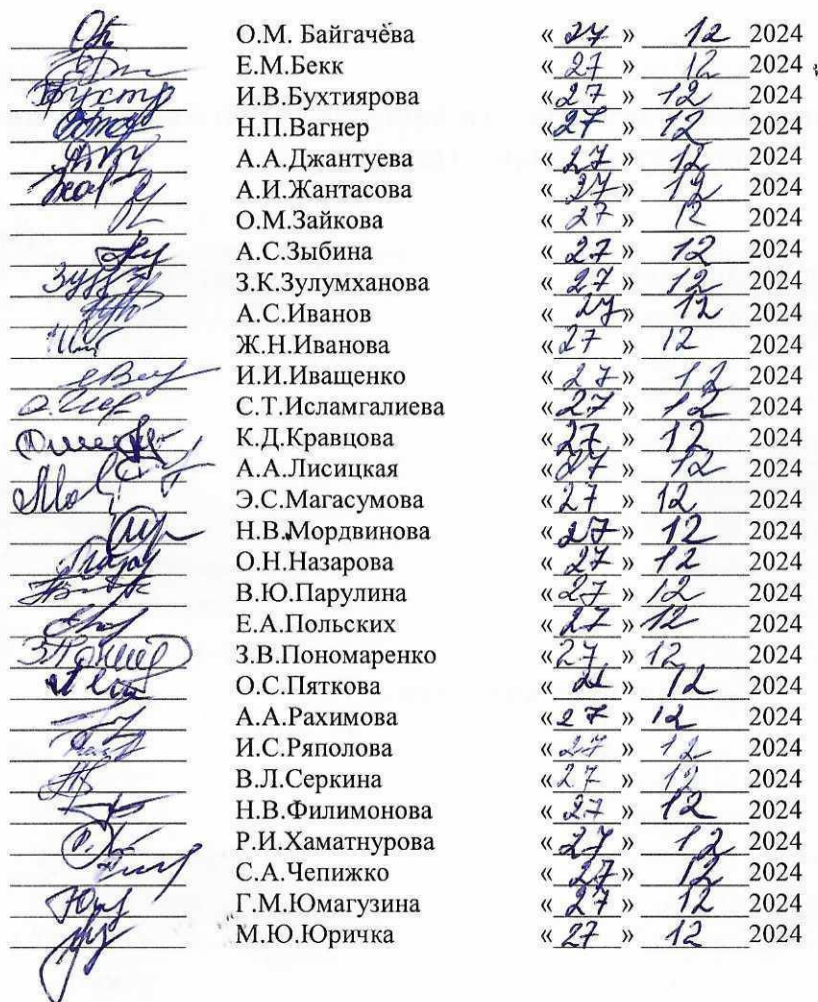 О.М. Байгачёва « 27 » 12 2024
Е.М.Бекк « 27 » 12 2024
И.В.Бухтиярова « 27 » 12 2024
Н.П.Вагнер « 27 » 12 2024
А.А.Джантуева « 27 » 12 2024
А.И.Жантасова « 27 » 12 2024
О.М.Зайкова « 27 » 12 2024
А.С.Зыбина « 27 » 12 2024
З.К.Зулумханова « 27 » 12 2024
А.С.Иванов « 27 » 12 2024
Ж.Н.Иванова « 27 » 12 2024
И.И.Иващенко « 27 » 12 2024
С.Т.Исламгалиева « 27 » 12 2024
К.Д.Кравцова « 27 » 12 2024
А.А.Лисицкая « 27 » 12 2024
Э.С.Магасумова « 27 » 12 2024
Н.В.Мордвинова « 27 » 12 2024
О.Н.Назарова « 27 » 12 2024
В.Ю.Парулина « 27 » 12 2024
Е.А.Польских « 27 » 12 2024
З.В.Пономаренко « 27 » 12 2024
О.С.Пяткова « » 12 2024
А.А.Рахимова « 27 » 12 2024
И.С.Ряполова « 27 » 12 2024
В.Л.Серкина « 27 » 12 2024
Н.В.Филимонова « 27 » 12 2024
Р.И.Хаматнурова « 27 » 12 2024
С.А.Чепижко « 27 » 12 2024
Г.М.Юмагузина « 27 » 12 2024
М.Ю.Юричка « 27 » 12 2024